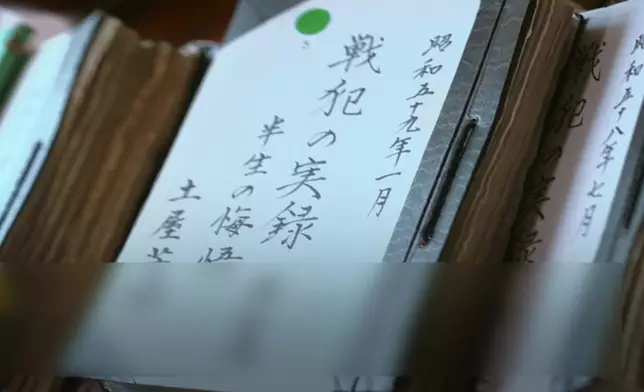 昭和五十九年一月
戦犯の実録
半生の悔悟
土屋芳
昭和五十八年七月
戦犯の実録